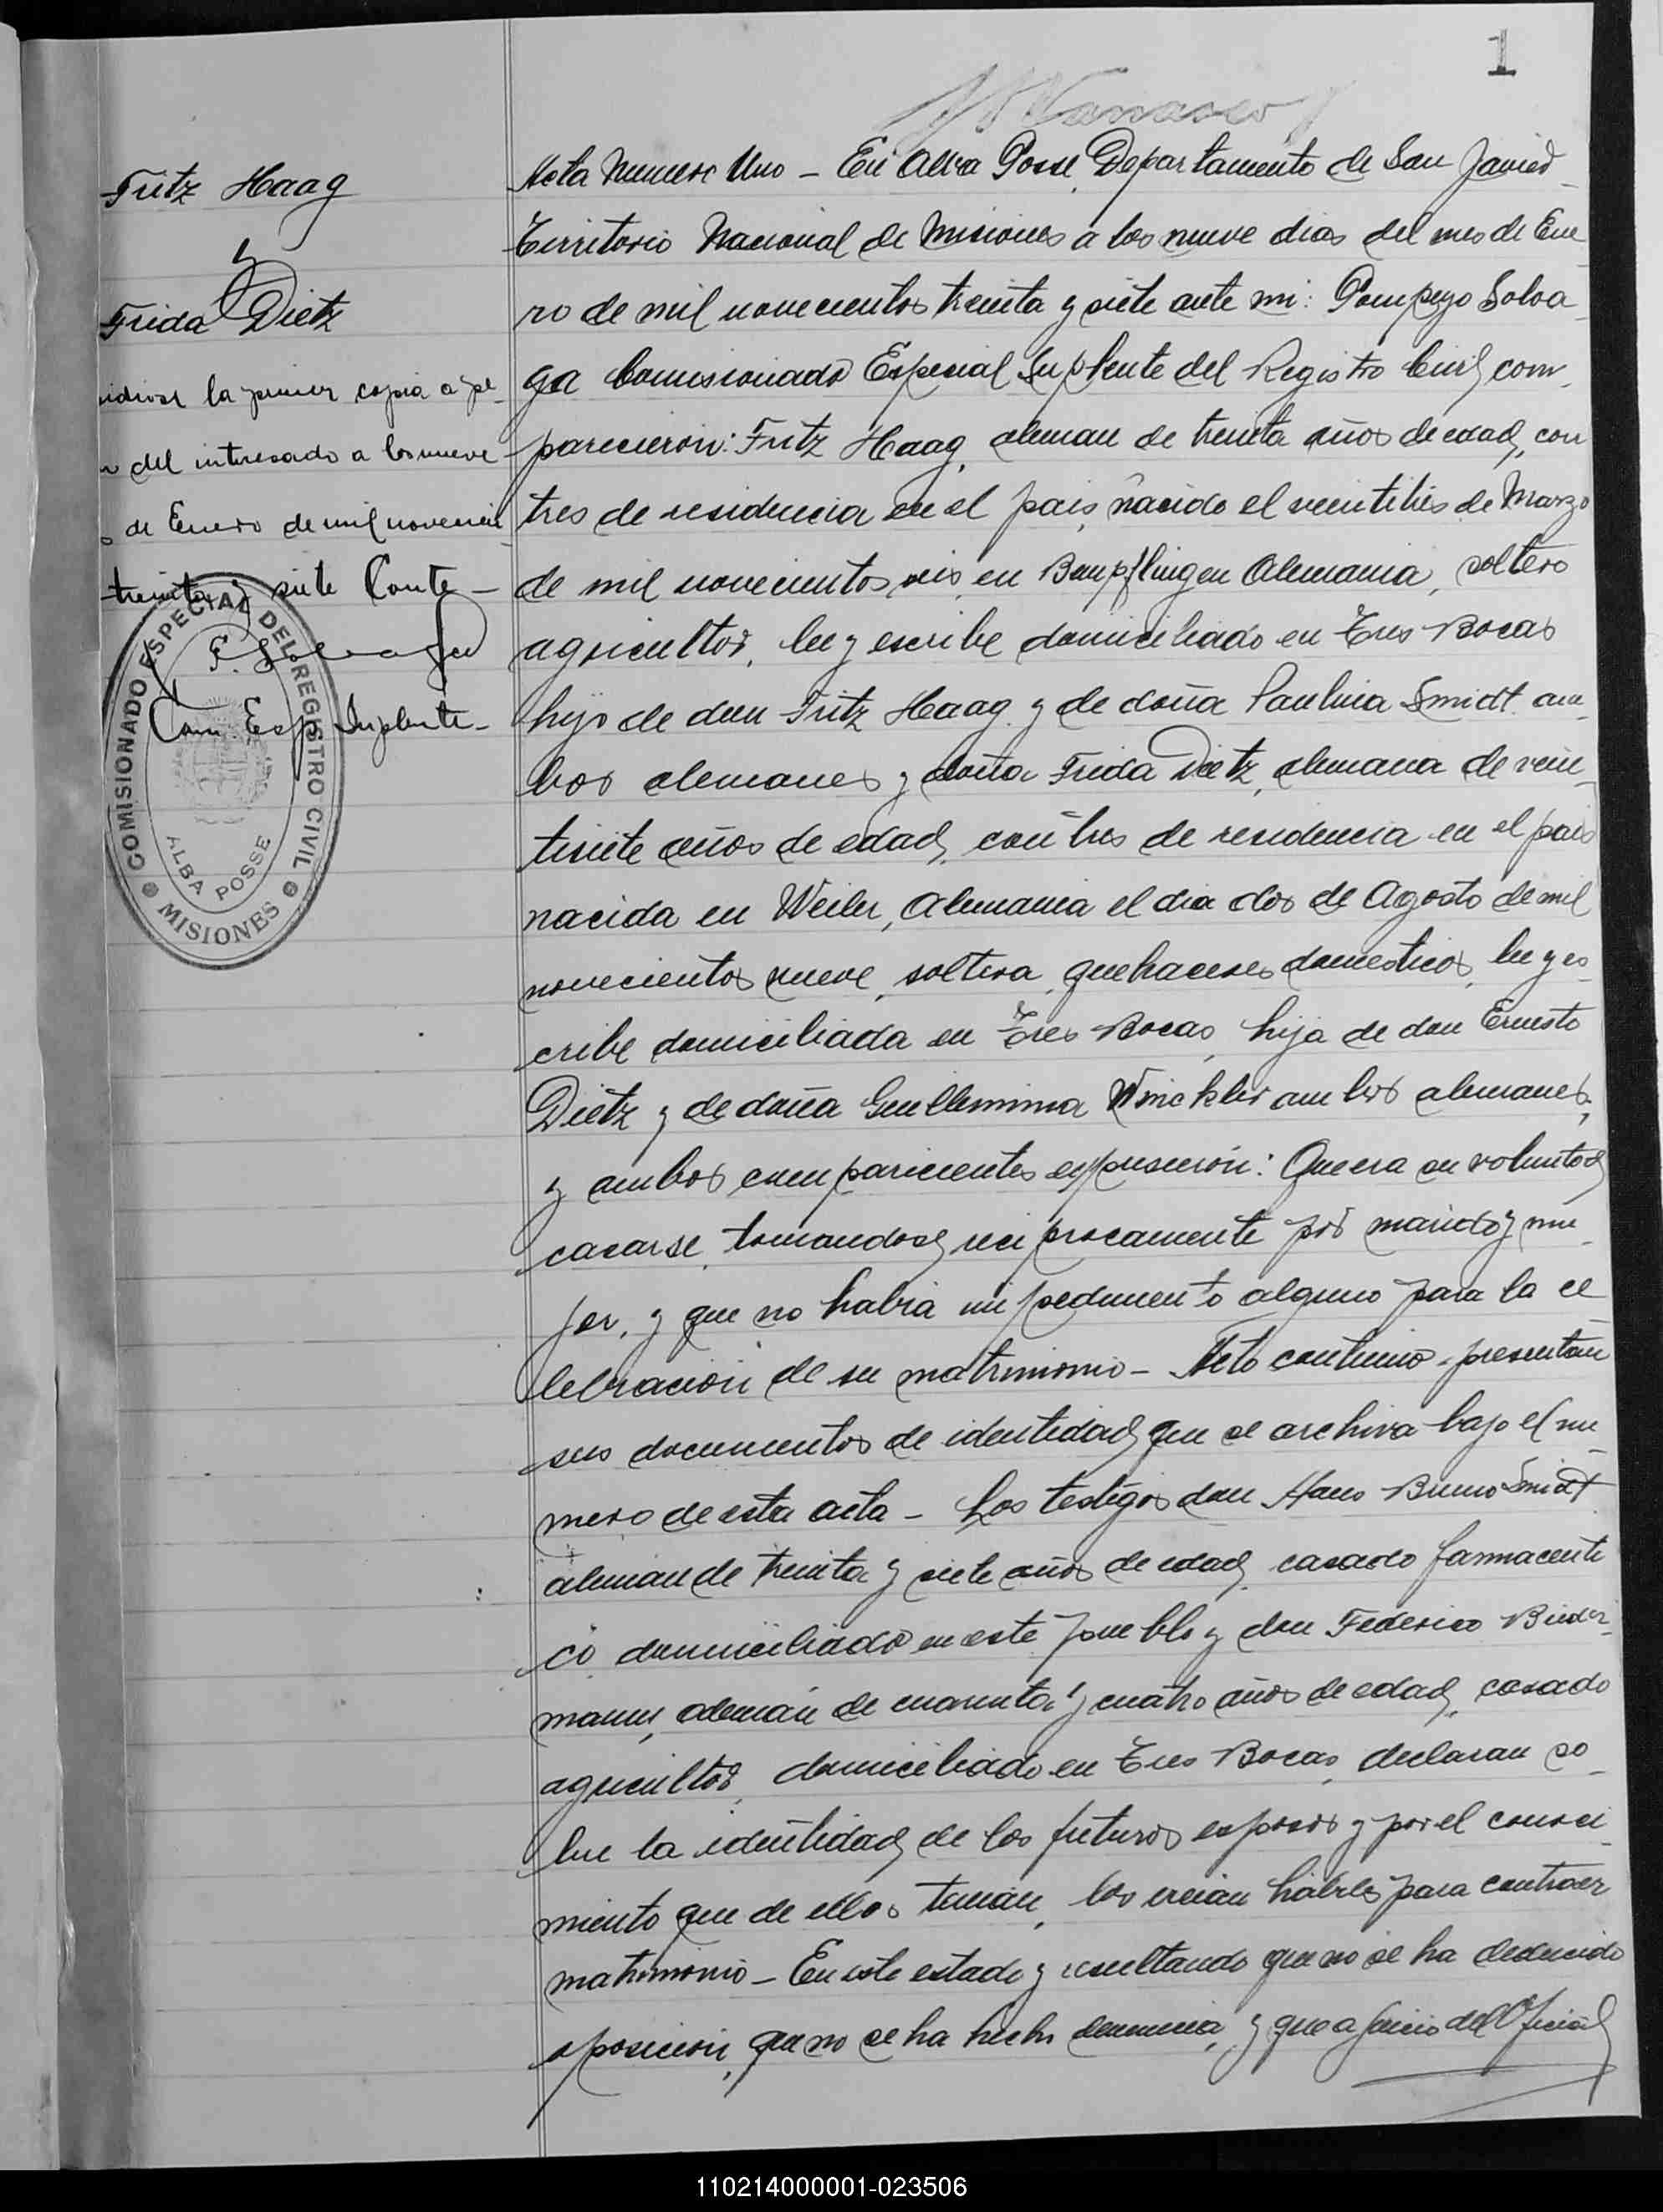 1
Fritz Haag
y
Frida Dietz
la primer copia a pe-
del interesado a los nueve
de Enero de mil novecien
treinta y siete Conte-
Com. Esp. Suplente-
COMISIONADO ESPECIAL DEL REGISTRO CIVIL
ALBA POSSE
MISIONES
Acta Numero Uno - En Alba Posse, Departamento de San Javier
Territorio Nacional de Misiones a los nueve dias del mes de Ene
ro de mil novecientos treinta y siete ante mi: Pompeyo Soloa
ga Comisionado Especial Suplente del Registro Civil, com-
parecieron: Fritz Haag, aleman de treinta años de edad, con
tres de residencia en el pais, nacido el veintitrés de Marzo
de mil novecientos seis, en Bempflingen Alemania, soltero
agricultor, lee y escribe domiciliado en Tres Bocas
hijo de don Fritz Haag y de doña Paulina Smidt am-
bos alemanes y doña Frida Dietz, alemana de vein-
tisiete años de edad, con tres de residencia en el pais
nacida en Weiler, Alemania el dia dos de Agosto de mil
novecientos nueve, soltera, quehaceres domesticos, lee y es-
cribe domiciliada en Tres Bocas, hija de don Ernesto
Dietz y de doña Guillermina Winckler ambos alemanes,
y ambos comparecientes expusieron: Que era su voluntad
casarse, tomandose reciprocamente por marido y mu-
jer, y que no habia impedimento alguno para la ce
lebracion de su matrimonio - Acto continuo presentan
sus documentos de identidad que se archiva bajo el nu-
mero de esta acta - Los testigos don Hans Bruno Smidt
aleman de treinta y siete años de edad, casado farmaceuti
co domiciliado en este pueblo y don Federico Bieder-
mann, alemán de cuarenta y cuatro años de edad, casado
agricultor, domiciliado en Tres Bocas, declaran so-
bre la identidad de los futuros esposos y por el conoci-
miento que de ellos tenian, los creian habiles para contraer
matrimonio - En este estado y resultando que no se ha deducido
oposicion, que no se ha hecho denuncia, y que a juicio del Oficial
110214000001-023506